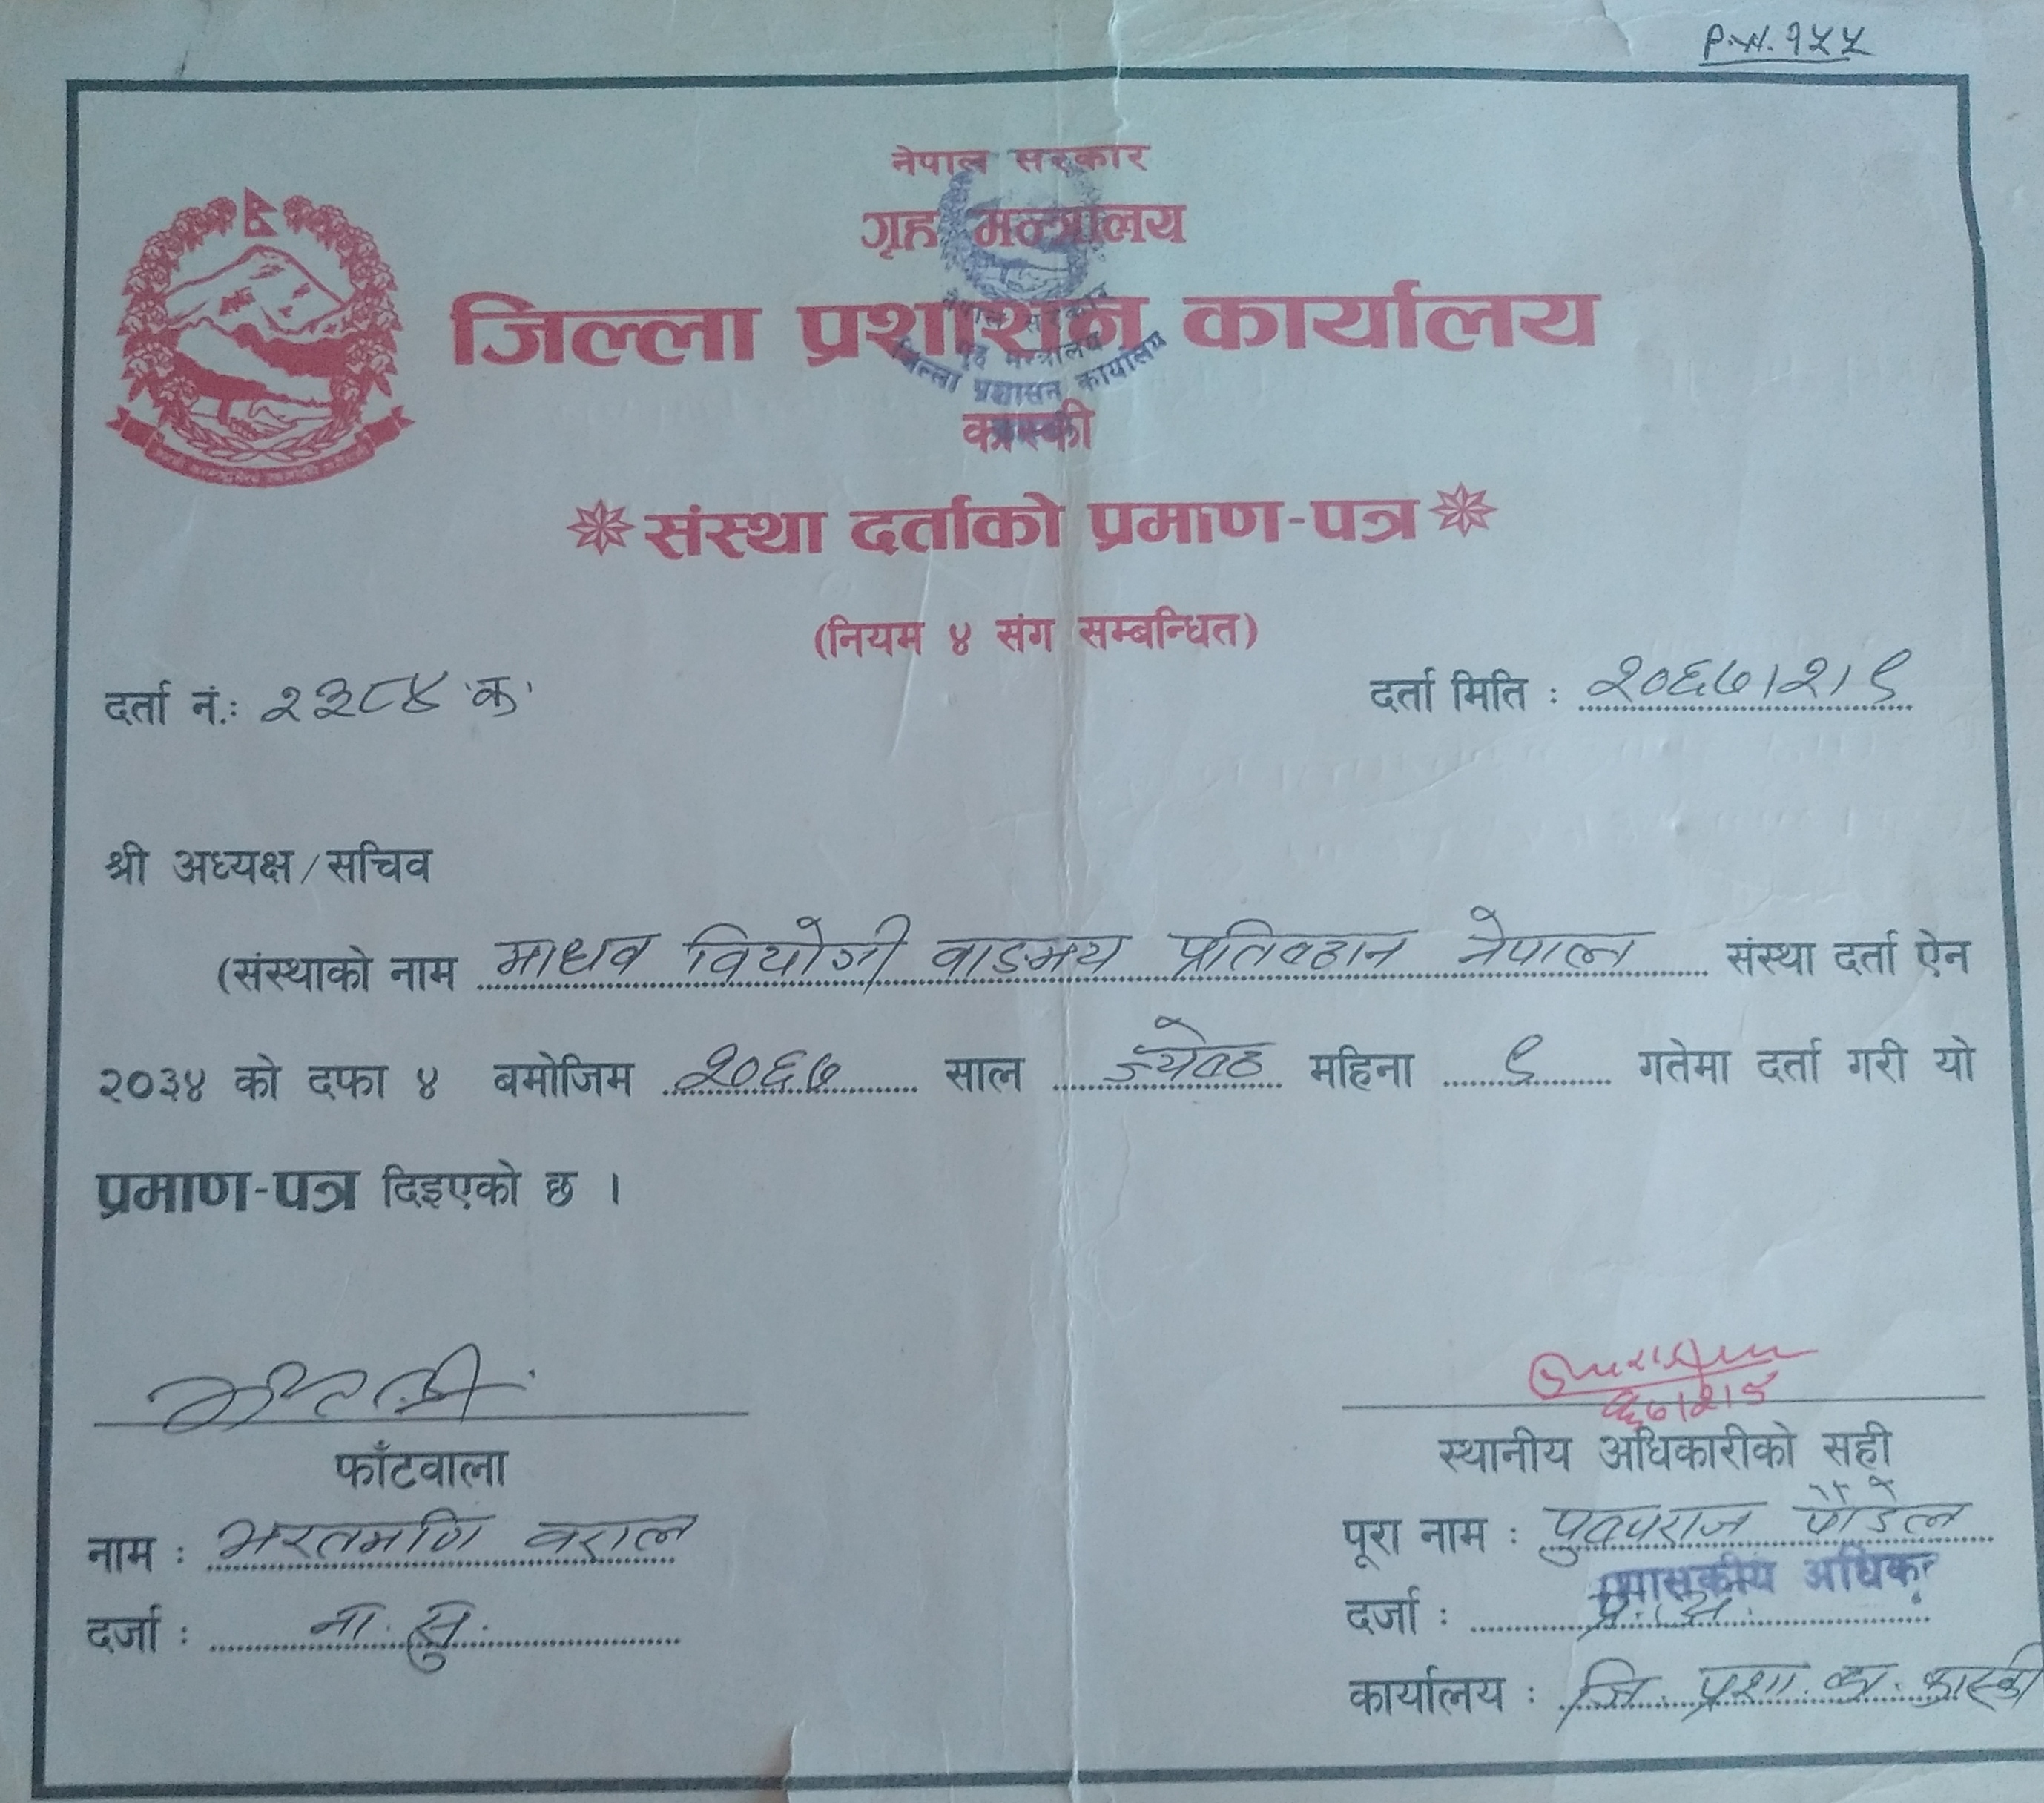 P.N. १५५
नेपाल सरकार
गृह मन्त्रालय
जिल्ला प्रशासन कार्यालय
कास्की
नेपाल सरकार
गृह मन्त्रालय
जिल्ला प्रशासन कार्यालय
संस्था दर्ताको प्रमाण-पत्र
(नियम ४ संग सम्बन्धित)
दर्ता नं.: २३८४ 'क' दर्ता मिति : २०६७।२।९
श्री अध्यक्ष/सचिव
(संस्थाको नाम माधव वियोगी वाङमय प्रतिष्ठान नेपाल संस्था दर्ता ऐन
२०३४ को दफा ४ बमोजिम २०६७ साल ज्येष्ठ महिना ९ गतेमा दर्ता गरी यो
प्रमाण-पत्र दिइएको छ ।
६७।२।९
फाँटवाला स्थानीय अधिकारीको सही
नाम : भरतमणि वराल पूरा नाम : पुष्पराज पौडेल
दर्जा : ना. सु. दर्जा : प्र. अ.
कार्यालय : जि. प्रशा. का. कास्की